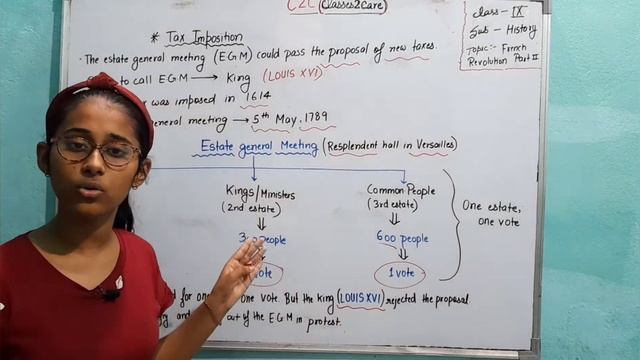 C2C (Classes2Care)
Class - IX
Sub - History
Topic:- French
Revolution Part II
* Tax Imposition
The estate general meeting (EGM) could pass the proposal of new taxes.
to call EGM → King (LOUIS XVI)
was imposed in 1614
general meeting → 5th May, 1789
Estate general Meeting (Resplendent hall in Versailles)
Kings/Ministers
(2nd estate)
300 people
vote
Common People
(3rd estate)
600 people
1 vote
One estate,
one vote
for one vote. But the king (LOUIS XVI) rejected the proposal
and out of the EGM in protest.